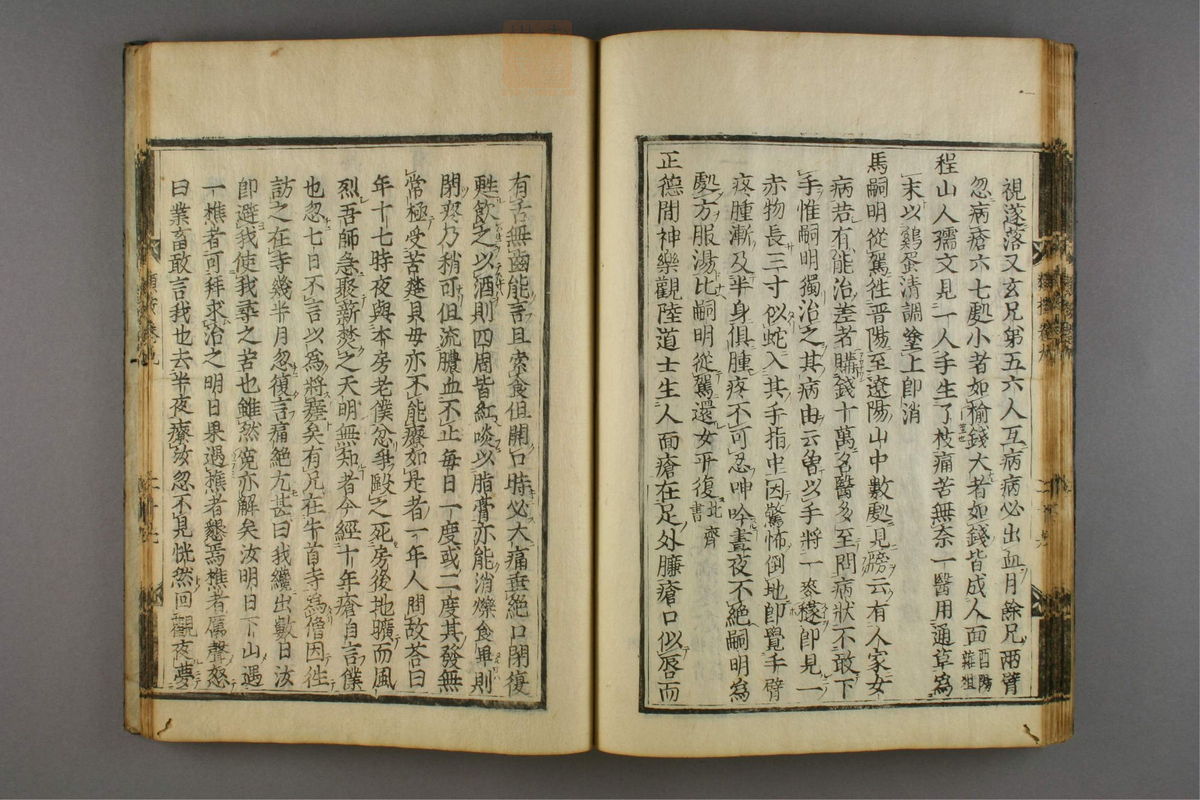 視遂落又玄兄弟五六人互病病必出血月餘兄兩臂
忽病瘡六七處小者如榆錢大者如錢皆成人面酉陽雜俎
程山人孺文見一人手生了枝痛苦無奈一醫用通草為
末以鷄蛋清調塗上卽消
馬嗣明從駕徃晋陽至遼陽山中數處見牓云有人家女
病若有能治差者購錢十萬名醫多至問病狀不敢下
手惟嗣明獨治之其病由云曾以手將一麥穟卽見一
赤物長三寸似蛇入其手指中因驚怖倒地卽覺手臂
疼腫漸及半身俱腫疼不可忍呻吟晝夜不絕嗣明為
處方服湯比嗣明從駕還女平復北齊書
正德間神樂觀陸道士生人面瘡在足外臁瘡口似唇而
有舌無齒能言且索食但開口時必大痛垂絕口閉復
甦飲之以酒則四周皆紅啖以脂膏亦能消爍食畢則
閉疼乃稍可但流膿血不止每日一度或二度其發無
常極受苦楚貝母亦不能療如是者一年人問故荅曰
年十七時夜與本房老僕忿爭毆之死房後地曠而風
烈吾師急聚薪焚之天明無知者今經十年瘡自言僕
也忽七日不言以為將痊矣有兄在牛首寺為僧因徃
訪之在寺幾半月忽復言痛絕尤甚曰我纔出數日汝
卽避我使我尋之苦也雖然寃亦解矣汝明日下山遇
一樵者可拜求治之明日果遇樵者懇焉樵者厲聲怒
曰業畜敢言我也去半夜療汝忽不見恍然回觀夜夢